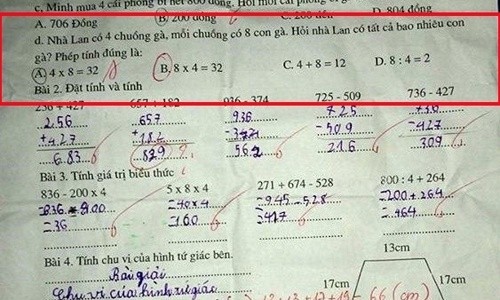 c, Minh mua 4 cái phong bì hết 800 đồng. Hỏi mỗi cái phong bì
A. 706 Đồng B/ 200 đồng C. 200 đến D. 804 đồng
d. Nhà Lan có 4 chuồng gà, mỗi chuồng có 8 con gà. Hỏi nhà Lan có tất cả bao nhiêu con
gà? Phép tính đúng là:
A. 4 x 8 = 32 B. 8 x 4 = 32 C. 4 + 8 = 12 D. 8 : 4 = 2
Bài 2. Đặt tính và tính
256 + 427 657 + 182 936 - 374 725 - 509 736 - 427
256 657 936 725 736
+427 +182 -374 -509 -427
683 829 562 216 309
Bài 3. Tính giá trị biểu thức
836 - 200 x 4 5 x 8 x 4 271 + 674 - 528 800 : 4 + 264
=836 - 800 =40 x 4 =945 - 528 =200 + 264
=36 =160 =417 =464
Bài 4. Tính chu vi của hình tứ giác bên. 13cm
Bài giải
Chu vi của hình tứ giác 17cm 17cm
66 (cm)